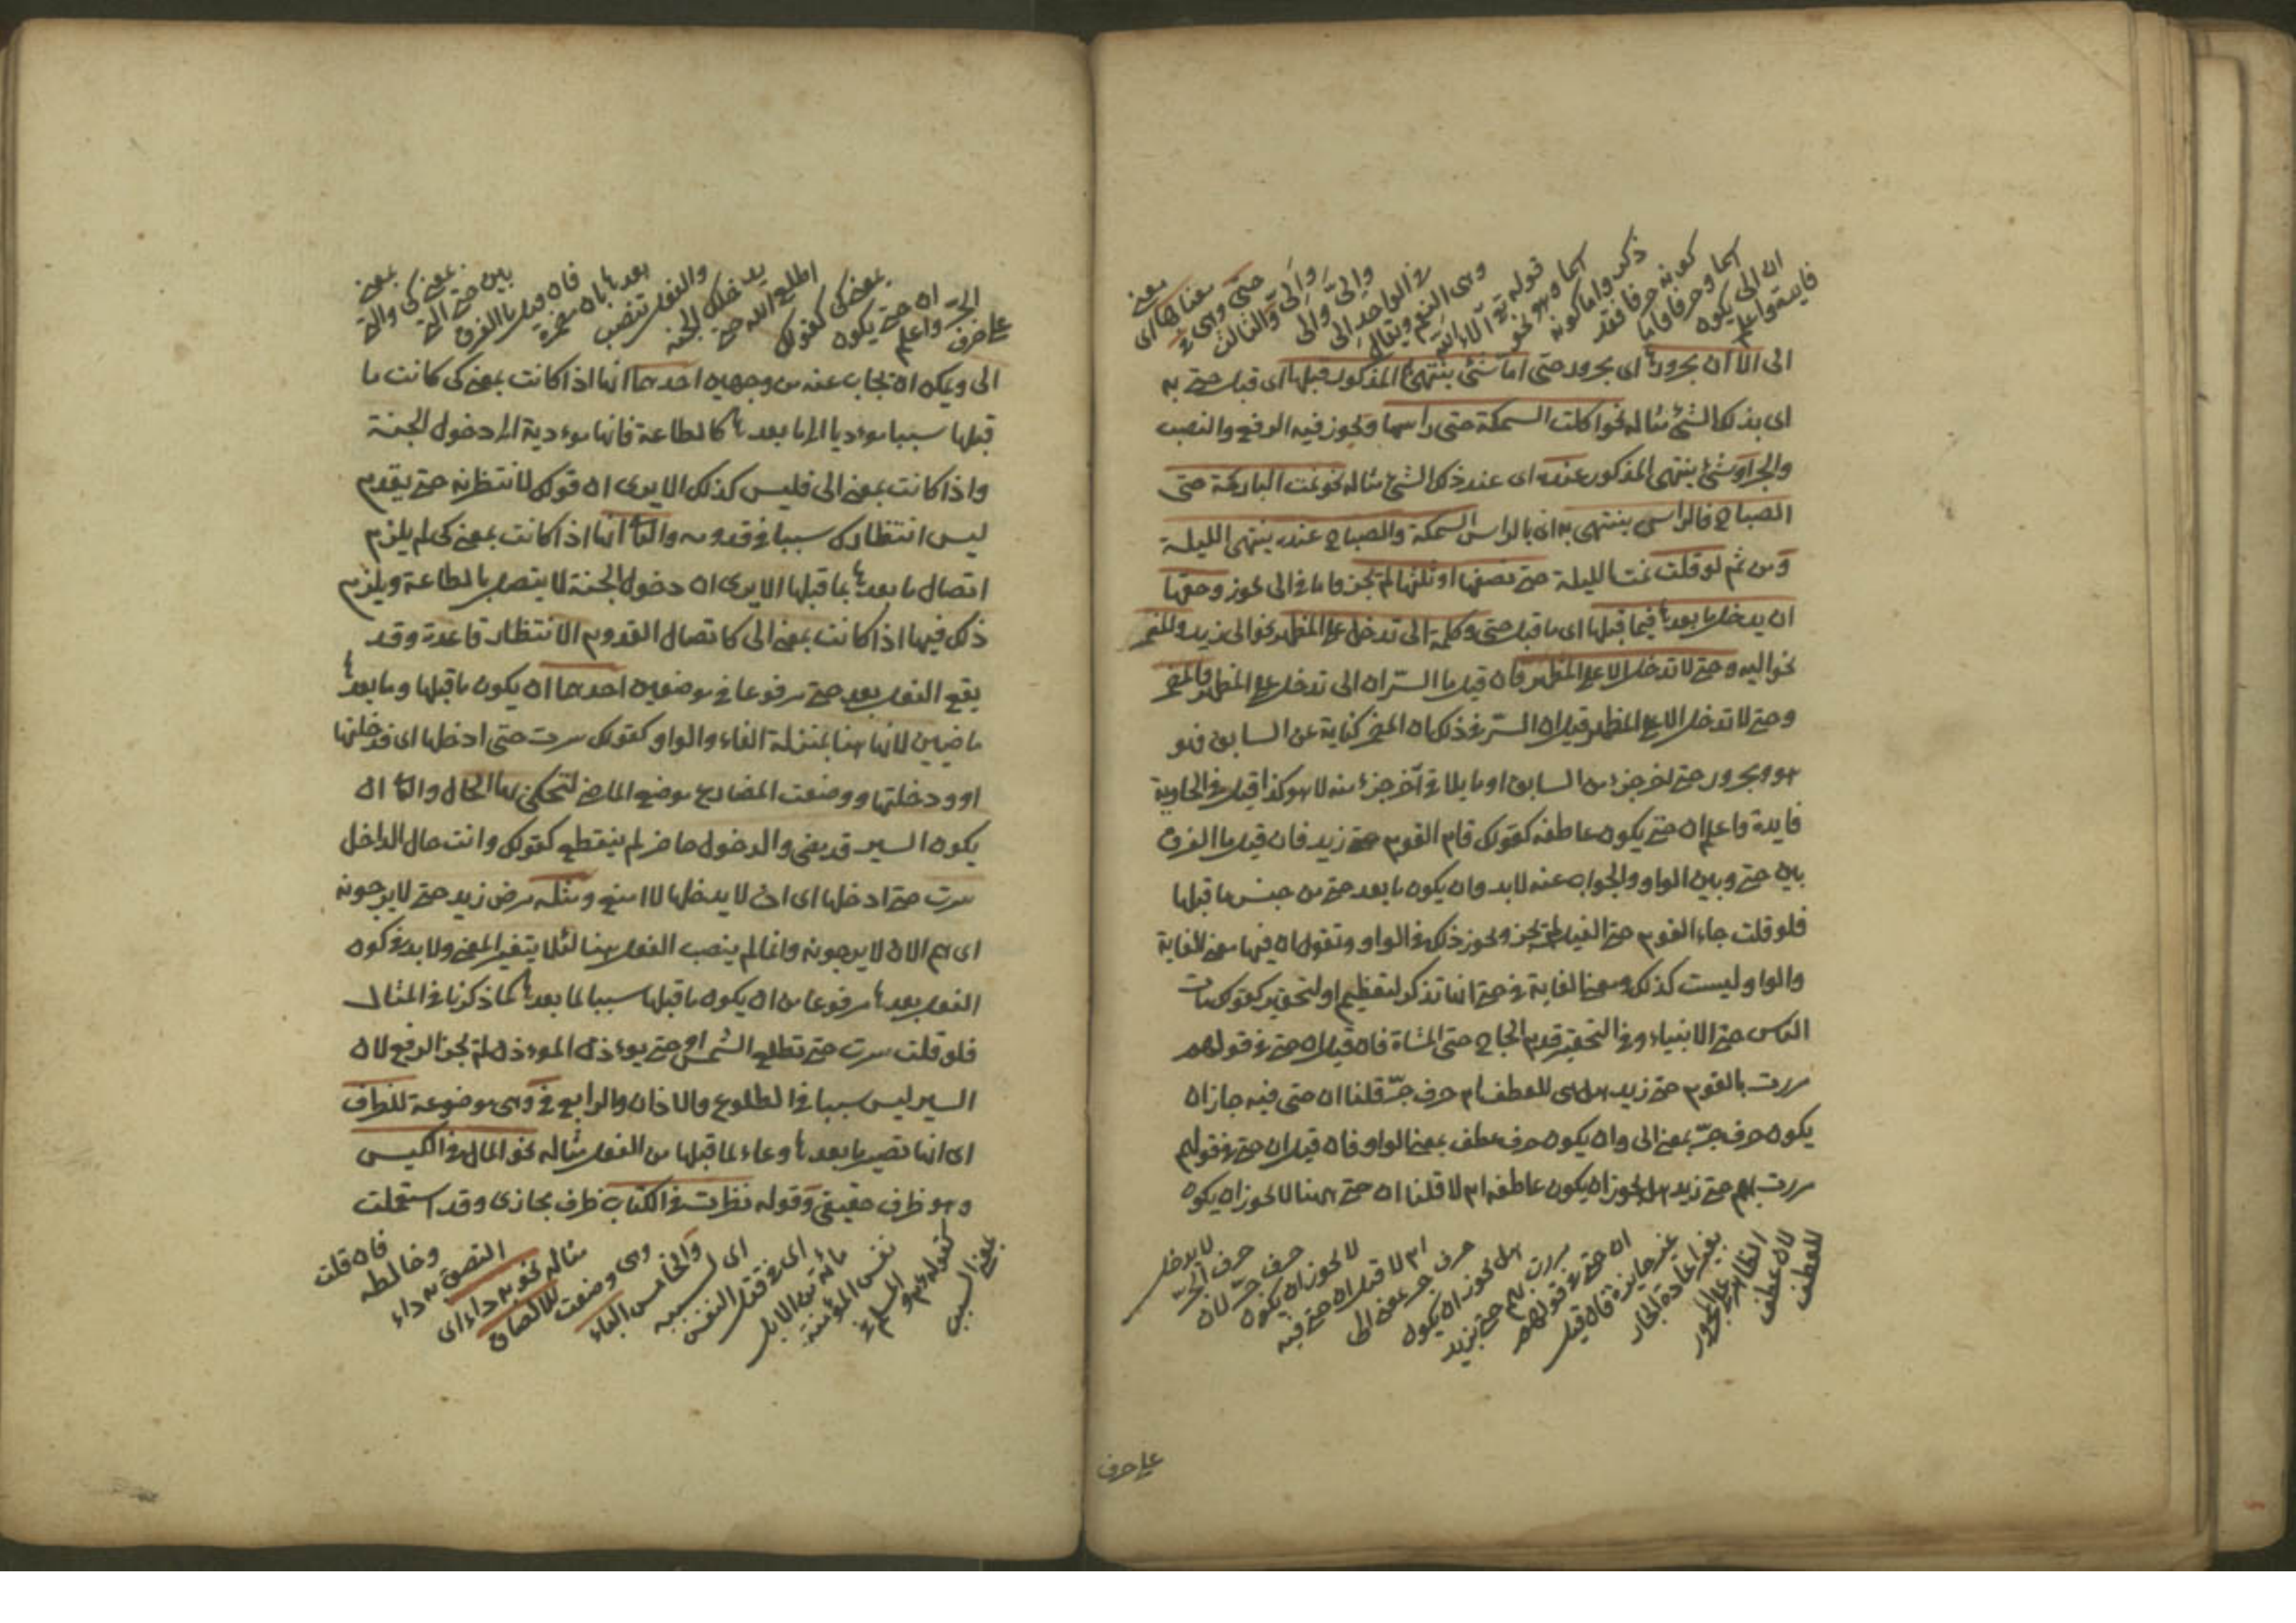 فايدة واعلم
ان الى يكون
اسما وحرفا فاما
كونه حرفا فقد
ذكر واما كونه
اسما وهو نحو
قوله تع آلاء الله
وهى النعم ويقال
فى الواحد الى
والى والى
والى والثالث
حتى وهى فى
معناها اى
معنى
الى الا ان مجرورها اى مجرور حتى اما شئ ينتهى المذكور قبلها اى قبل حتى به
اى بذلك الشئ مثاله نحو اكلت السمكة حتى راسها ويجوز فيه الرفع والنصب
والجر او شئ ينتهى المذكور عنده اى عند ذلك الشئ مثاله نحو نمت البارحة حتى
الصباح فالراس ينتهى به اى بالراس السمكة والصباح عنده ينتهى الليلة
ومن ثم لو قلت نمت الليلة حتى نصفها او ثلثها لم يجز واما فى الى يجوز وحقها
ان يدخل ما بعدها فيما قبلها اى ما قبل حتى وكلمة الى تدخل على المظهر نحو الى زيد والمضمر
نحو اليه وحتى لا تدخل الا على المظهر فان قيل ما السر ان الى تدخل على المظهر والمضمر
وحتى لا تدخل الا على المظهر قيل ان السر فى ذلك ان المضمر كناية عن السابق فهو
هو ومجرور حتى اخر جزء من السابق او ما يلاقى آخر جزء منه لا هو كذا قيل فى الحاوية
فايدة واعلم ان حتى يكون عاطفه كقولك قام القوم حتى زيد فان قيل ما الفرق
بين حتى وبين الواو والجواب عنه لابد وان يكون ما بعد حتى من جنس ما قبلها
فلو قلت جاء القوم حتى الفيل لم يجز ويجوز ذلك فى الواو وتقول ان فيها معنى للغاية
والواو ليست كذلك ومعنى الغاية فى حتى انها تذكر لتعظيم او لتحقير كقولك مات
الناس حتى الانبياء وفى التحقير قدم الحاج حتى المشاة فان قيل ان حتى فى قولهم
مررت بالقوم حتى زيد هل هى للعطف ام حرف جر قلنا ان حتى فيه جاز ان
يكون حرف جر بمعنى الى وان يكون حرف عطف بمعنى الواو فان قيل ان حتى فى قولهم
مررت بهم حتى زيد هل يجوز ان يكون عاطفه ام لا قلنا ان حتى ههنا لا يجوز ان يكون
للعطف
لان عطف
الظاهر على المجرور
بغير اعادة الجار
غير جايزة فان قيل
ان حتى فى قولهم
مررت بهم حتى بزيد
هل يجوز ان يكون
حرف جر بمعنى الى
ام لا قيل ان حتى فيه
لا يجوز ان يكون
حرف جر لان
حرف الجر
لا يدخل
على حرف
على حرف
الجر واعلم
ان حتى يكون
بمعنى كى كقولك
اطلع الله حتى
يدخلك الجنة
والفعل تنصب
بعدها بان مضمرة
فان قيل ما الفرق
بين حتى التى
بمعنى كى والتى
بمعنى
الى ويمكن ان يجاب عنه من وجهين احدهما انها اذا كانت بمعنى كى كانت ما
قبلها سببا موءديا الى ما بعدها كالطاعة فانها موءدية الى دخول الجنة
واذا كانت بمعنى الى فليس كذلك الا يرى ان قولك لانتظرنه حتى يقدم
ليس انتظارك سببا فى قدومه والثانى انها اذا كانت بمعنى كى لم يلزم
اتصال ما بعدها بما قبلها الا يرى ان دخول الجنة لا يتصل بالطاعة ويلزم
ذلك فيها اذا كانت بمعنى الى كاتصال القدوم الانتظار قاعدة وقد
يقع الفعل بعد حتى مرفوعا فى موضعين احدهما ان يكون ما قبلها وما بعدها
ماضيين لانها هنا بمنزلة الفاء والواو كقولك سرت حتى ادخلها اى فدخلتها
او ودخلتها ووضعت المضارع موضع الماضى لتحكى بها الحال والثانى ان
يكون السير قد يمضى والدخول حاضر لم ينقطع كقولك وانت حال الداخل
سرت حتى ادخلها اى ان لا يدخلها لا امنع ومثله مرض زيد حتى لا يرجونه
اى هم الان لا يرجونه وانما لم ينصب الفعل ههنا لئلا يتغير المعنى ولابد فى كون
الفعل بعدها مرفوعا من ان يكون ما قبلها سببا لما بعدها كما ذكرنا فى المثال
فلو قلت سرت حتى تطلع الشمس او حتى يوءذن الموءذن لم يجز الرفع لان
السير ليس سببا فى الطلوع والاذان والرابع فى وهى موضوعة للظرف
اى انها تصير ما بعدها وعاء لما قبلها من الفعل مثاله نحو المال فى الكيس
وهو ظرف حقيقى وقوله نظرت فى الكتاب ظرف مجازى وقد استعملت
بمعنى السببى
كقوله عليه
السلام فى
نفس المؤمنة
مائة من الابل
اى فى قتل النفس
اى لسببه
والخامس الباء
وهى وضعت
للالصاق
مثاله نحو به داء اى
التصق به داء
وخالطه
فان قلت